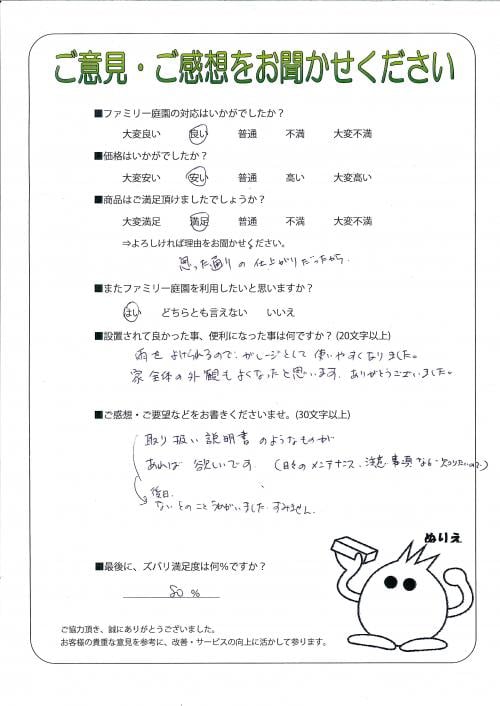 ご意見・ご感想をお聞かせください
■ファミリー庭園の対応はいかがでしたか？
大変良い 良い 普通 不満 大変不満
■価格はいかがでしたか？
大変安い 安い 普通 高い 大変高い
■商品はご満足頂けましたでしょうか？
大変満足 満足 普通 不満 大変不満
⇒よろしければ理由をお聞かせください。
思った通りの仕上がりだったから。
■またファミリー庭園を利用したいと思いますか？
はい どちらとも言えない いいえ
■設置されて良かった事、便利になった事は何ですか？(20文字以上)
雨をよけられるので、ガレージとして使いやすくなりました。
家全体の外観もよくなったと思います。ありがとうございました。
■ご感想・ご要望などをお書きくださいませ。(30文字以上)
取り扱い説明書のようなものが
あれば欲しいです。(日々のメンテナンス、注意事項など知りたいので)
後日、
ないとのことうかがいました。すみません。
ぬりえ
■最後に、ズバリ満足度は何%ですか？
80 %
ご協力頂き、誠にありがとうございました。
お客様の貴重な意見を参考に、改善・サービスの向上に活かして参ります。